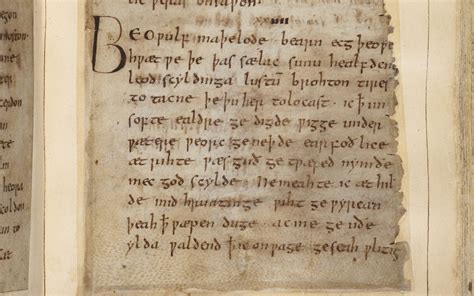 onsaƿon.
xxiiii
BEOǷULF maþelode bearn ecgþeoƿ
hƿæt ƿe þe þas sælac sunu healfdene
leod scyldinga lustū brohton tires
to tacne þe þu her to locast. ic ꝥ un
softe ealdre ge digde ƿigge under
ƿætere ƿeorc ge neþde earfoð lice
æt rihte ƿæs guð ge tƿæfed nymðe
mec god scylde. Ne meahte ic æt hil
de mid hruntinge ƿiht ge ƿyrcan
þeah ꝥ ƿæpen duge. ac me ge uðe
ylda ƿaldend ꝥ ic on ƿage geseah ƿlitig